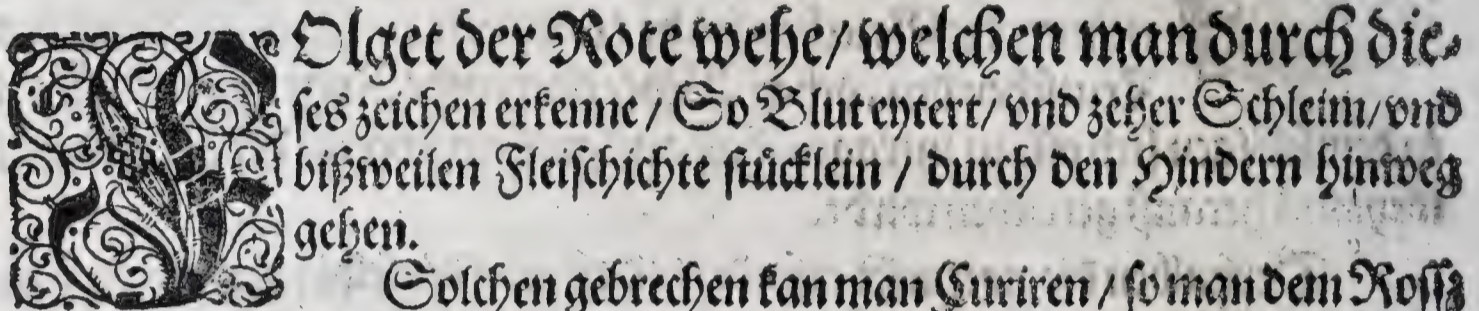 FOlget der Rote wehe / welchen man durch die⸗
ses zeichen erkenne / So Blut eytert / vnd zeher Schleim / vnd
bißweilen Fleischichte stücklein / durch den Hindern hinweg
gehen.
Solchen gebrechen kan man Curiren / so man dem Rossz